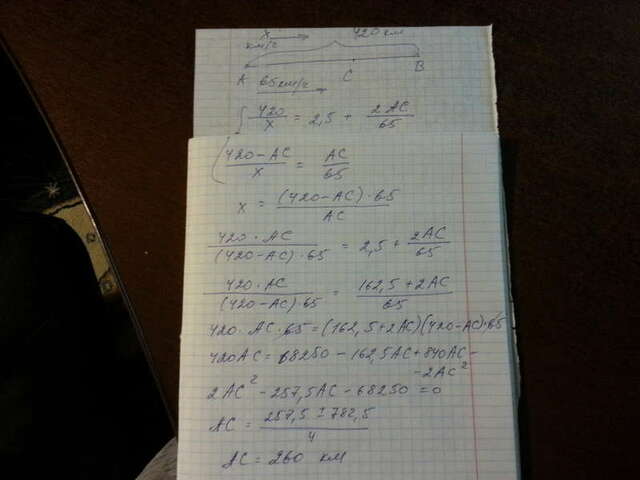 x км/ч 420 км
A 65 км/ч C B
420/x = 2,5 + 2AC/65
(420-AC)/x = AC/65
x = (420-AC)·65/AC
420·AC/(420-AC)·65 = 2,5 + 2AC/65
420·AC/(420-AC)·65 = 162,5+2AC/65
420·AC·65=(162,5+2AC)(420-AC)·65
420AC = 68250-162,5AC+840AC-
-2AC²
2AC²-257,5AC-68250=0
AC = 257,5±782,5/4
AC = 260 км